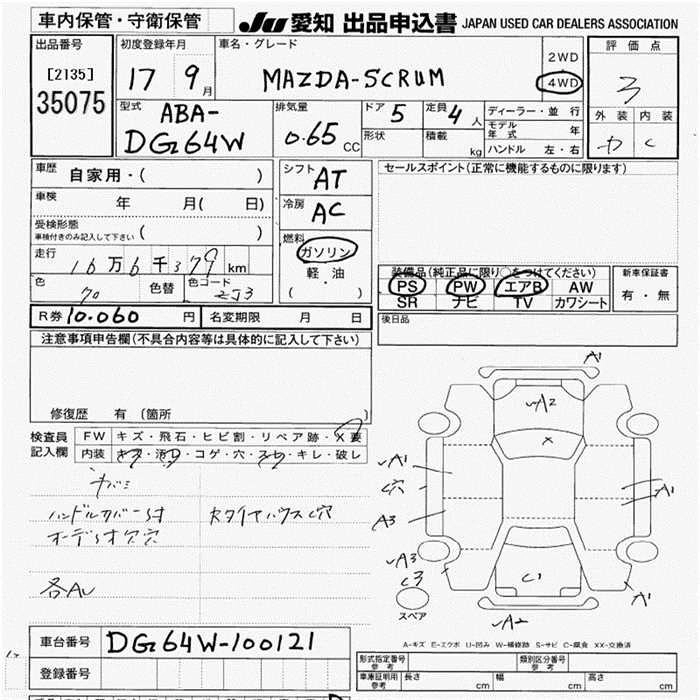 車内保管・守衛保管 JU 愛知 出品申込書 JAPAN USED CAR DEALERS ASSOCIATION
出品番号 初度登録年月 車名・グレード 評価点
[2135] 17 9月 MAZDA-SCRUM 2WD 3
35075 4WD
型式 ABA- 排気量 ドア 5 定員 4人 ディーラー・並行 外装 内装
DG64W 0.65 CC 形状 積載 kg モデル年式 年 C
ハンドル 左・右
車歴 自家用・( ) シフト AT セールスポイント(正常に機能するものに限ります)
車検 年 月( 日) 冷房 AC
受検形態
車検付きのみ記入して下さい ( )
燃料
走行 16万6千379km ガソリン 装備品(純正品に限り○をつけてください) 新車保証書
色 70 色替 色コード ZJ3 軽・油 PS PW エアB AW 有・無
( ・ ) SR ナビ TV カワシート
R券 10.060円 名変期限 月 日 後日品
注意事項申告欄(不具合内容等は具体的に記入して下さい)
修復歴 有 (箇所 )
検査員 FW キズ・飛石・ヒビ割・リペア跡・X要
記入欄 内装 キズ・汚レ・コゲ・穴・スレ・キレ・破レ
ハンドルカバー付 タイヤハウスC穴
オーディオ欠穴
各AU
A1
A2
X
A1
C穴
A1
A3
A3
C3
C1
A1
スペア
A2
A-キズ E-エクボ U-凹み W-補修跡 S-サビ C-腐食 XX-交換済
車台番号 DG64W-100121
登録番号
形式指定番号 参考 類別区分番号 参考
車庫証明用 参考 長さ cm 幅 cm 高さ cm